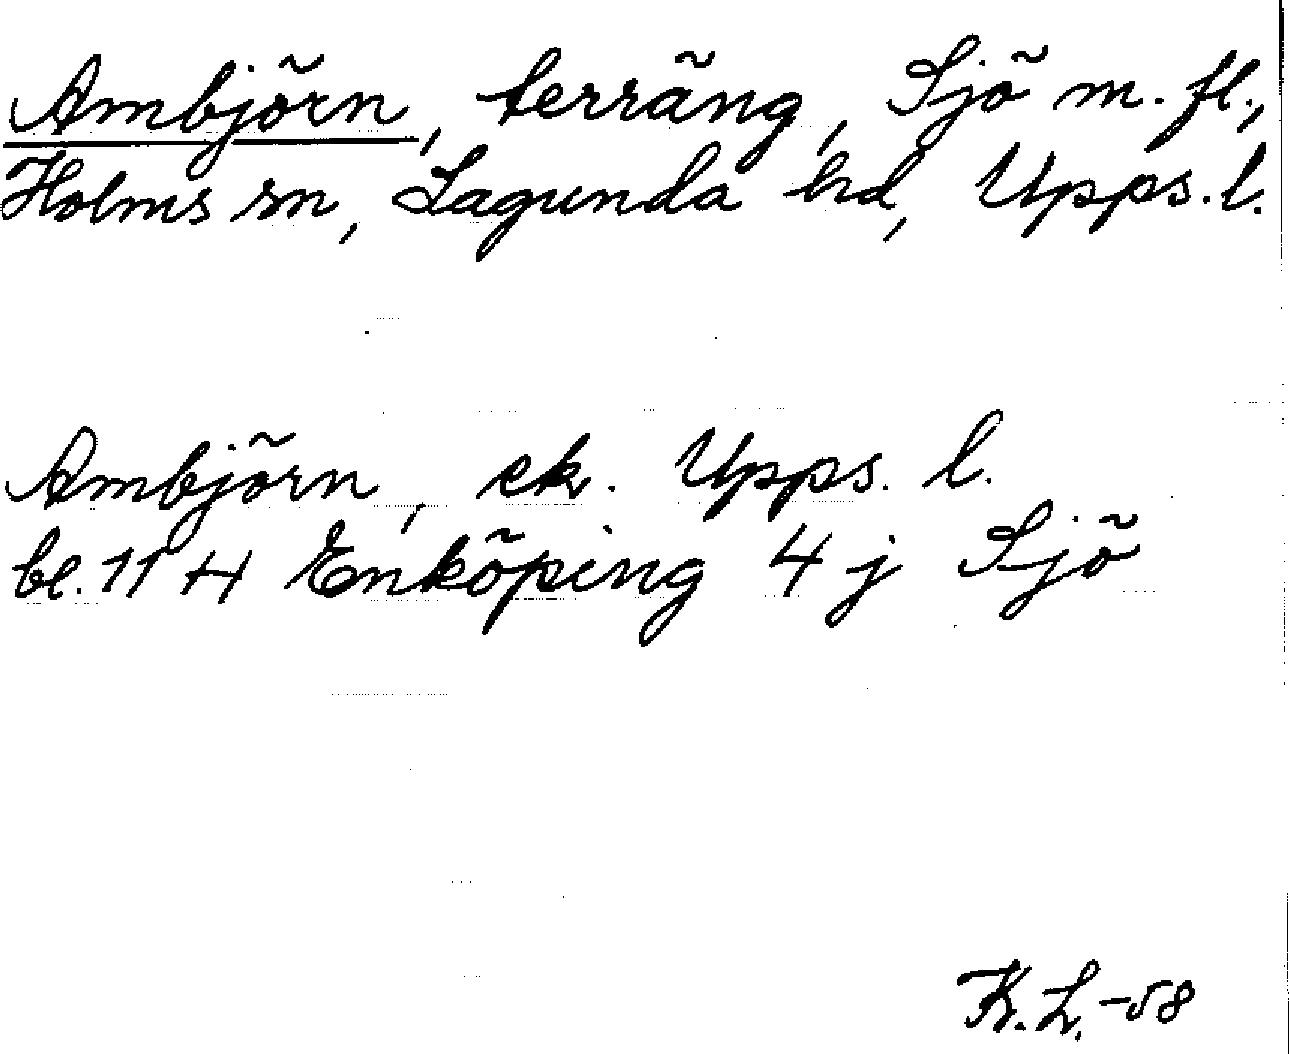 Ambjörn, terräng, Sjö m. fl.,
Holms sn, Lagunda hd, Upps. l.
Ambjörn, ek. Upps. l.
bl. 11 H Enköping 4 j Sjö
K. L. -58